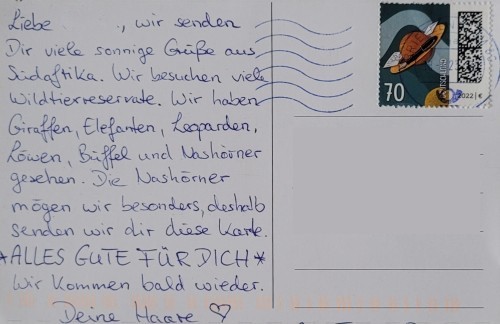 Liebe , wir senden
Dir viele sonnige Grüße aus
Südafrika. Wir besuchen viele
Wildtierreservate. Wir haben
Giraffen, Elefanten, Leoparden,
Löwen, Büffel und Nashörner
gesehen. Die Nashörner
mögen wir besonders, deshalb
senden wir dir diese Karte.
*ALLES GUTE FÜR DICH*
Wir kommen bald wieder.
Deine Haare ♡
70
DEUTSCHLAND
2022 | €